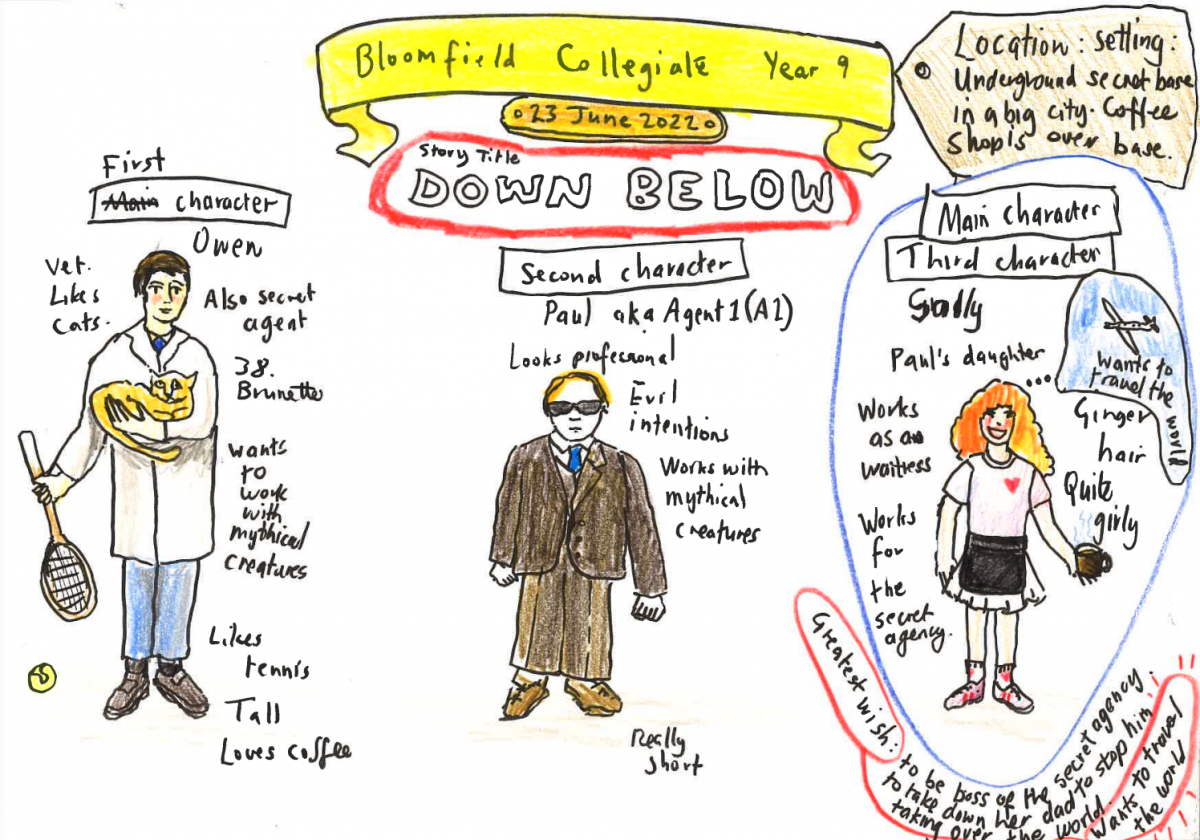 Bloomfield Collegiate Year 9
23 June 2022
Story Title
DOWN BELOW
Location: setting:
Underground secret base
in a big city. Coffee
shop is over base.
First
Main character
Owen
Vet.
Likes
cats.
Also secret
agent
38.
Brunette
wants
to
work
with
mythical
creatures
Likes
tennis
Tall
Loves coffee
Second character
Paul aka Agent 1 (A1)
Looks profecional
Evil
intentions
Works with
mythical
creatures
Really
short
Main character
Third character
Paul's daughter
wants to
travel the
world
Works
as a
waitress
Ginger
hair
Quite
girly
Works
for
the
secret
agency.
Greatest wish:
to be boss of the secret agency.
to take down her dad to stop him
taking over the world.
Wants to travel
the world